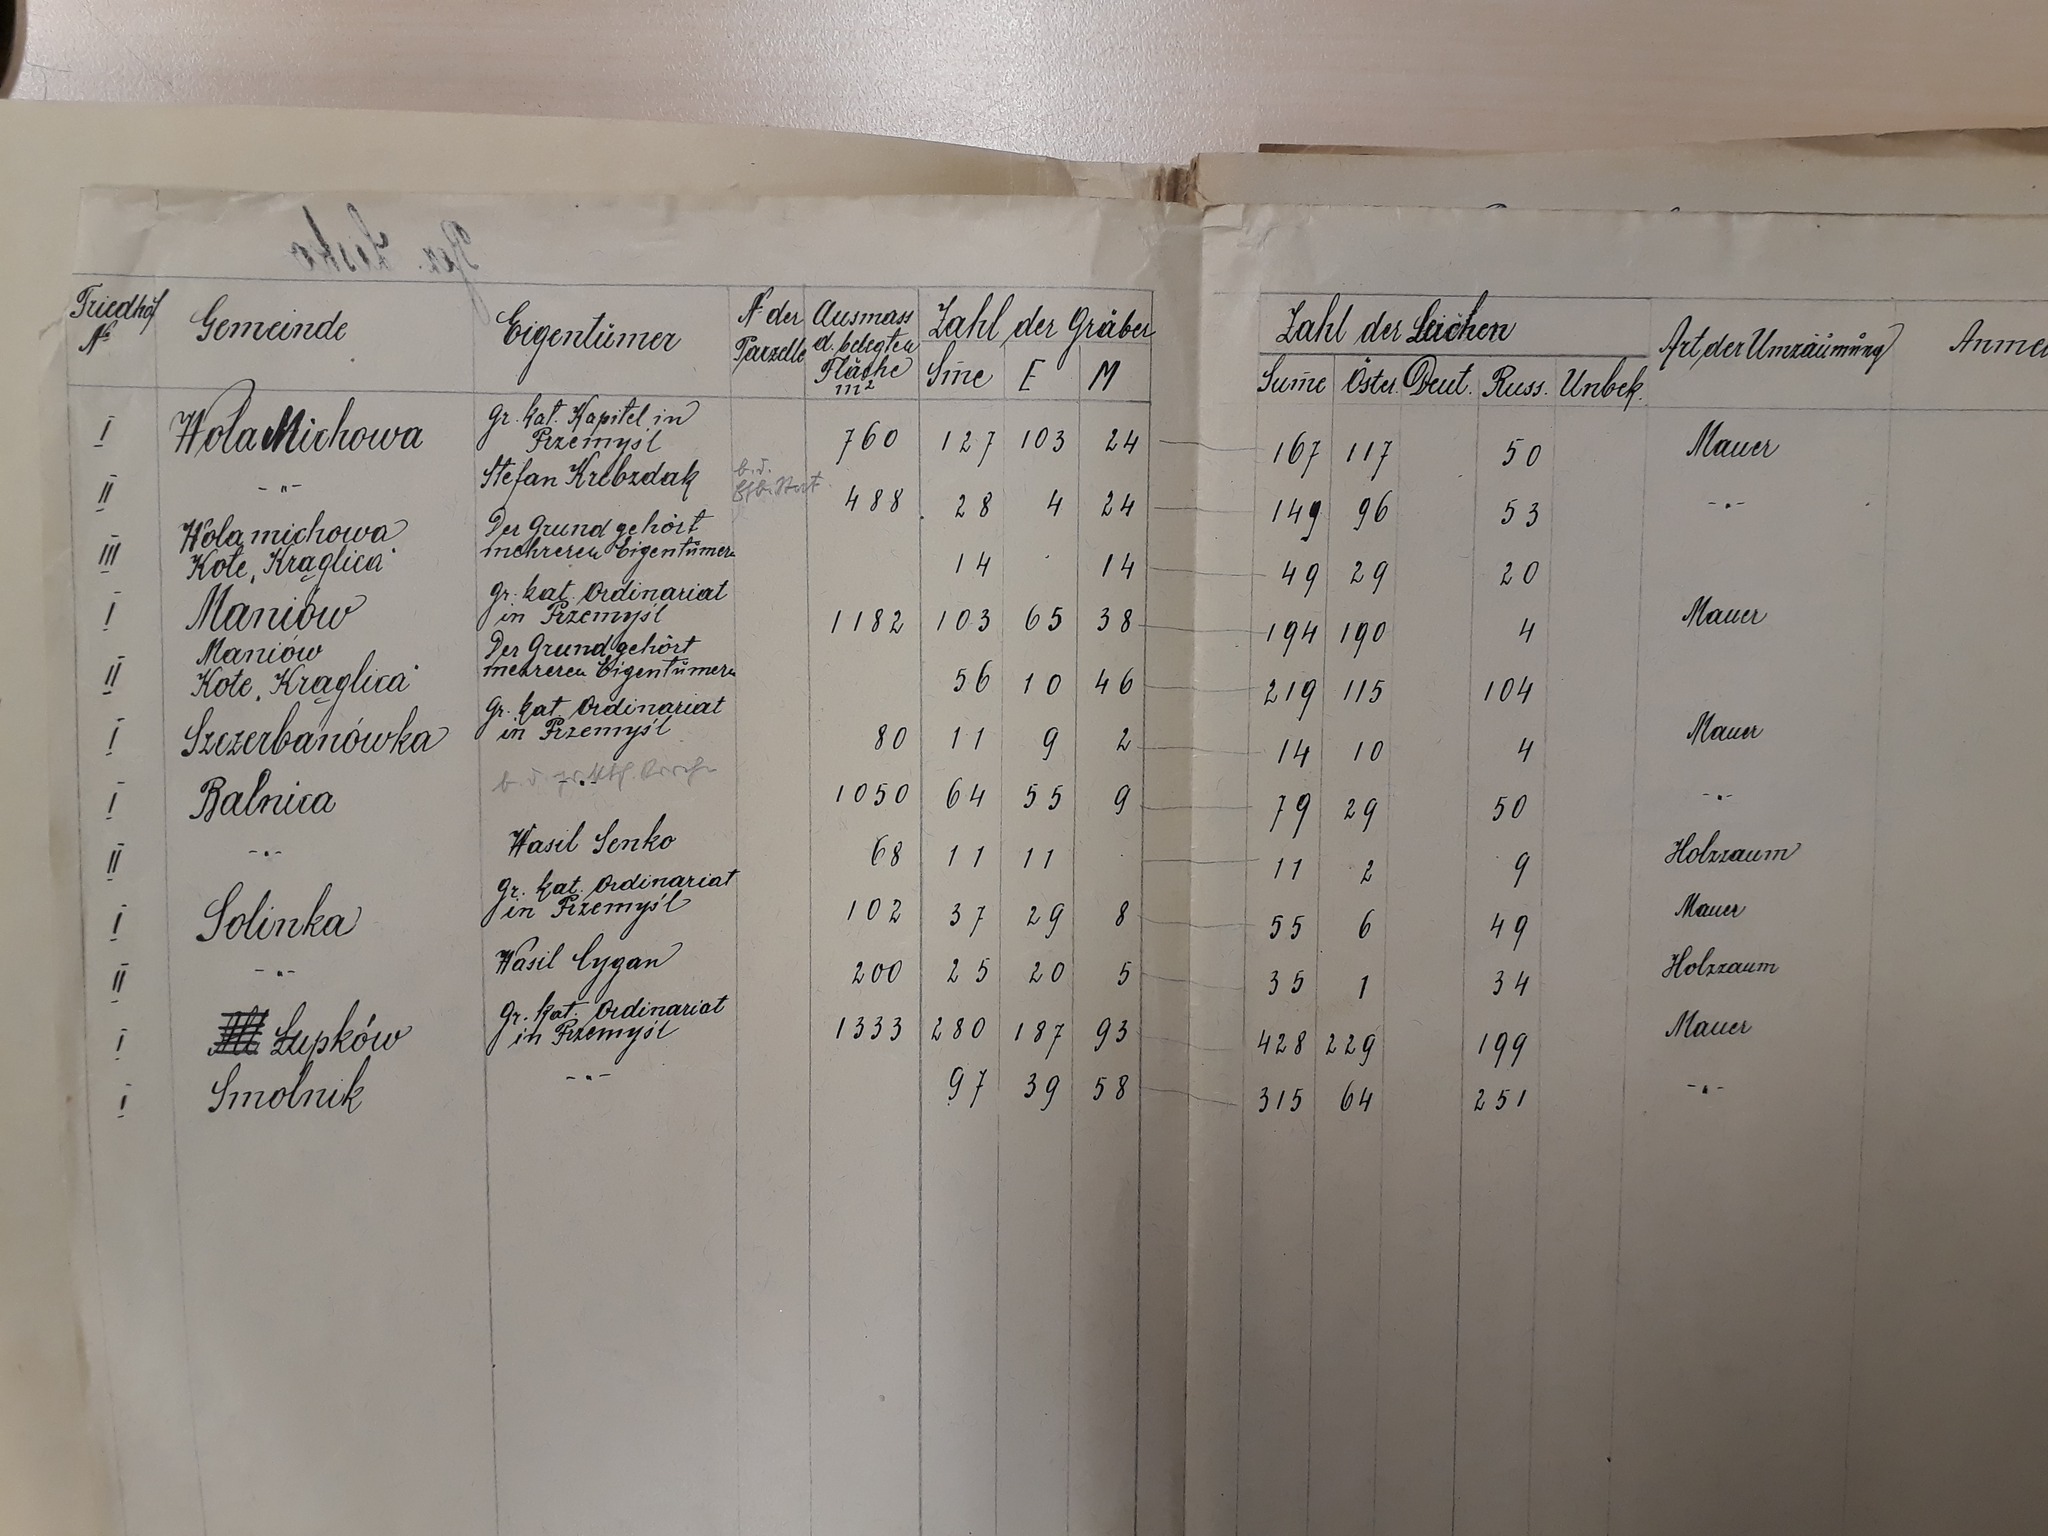 Bez. Lisko
Friedhof № Gemeinde Eigentümer № der Parzelle Ausmass d. belegten Fläche m² Zahl der Gräber Zahl der Leichen Art der Umzäumung
Sm̄e E M Sum̄e Öster. Deut. Russ. Unbek.
I Wola Michowa gr. kat. Kapitel in Przemyśl 760 127 103 24 167 117 50 Mauer
II -"- Stefan Krebzdak 488 28 4 24 149 96 53 -"-
III Wola michowa Kote „Krąglica" Der Grund gehört mehreren Eigentümern 14 14 49 29 20
I Maniów gr. kat. Ordinariat in Przemyśl 1182 103 65 38 194 190 4 Mauer
II Maniów Kote „Krąglica" Der Grund gehört mehreren Eigentümern 56 10 46 219 115 104
I Szczerbanówka gr. kat. Ordinariat in Przemyśl 80 11 9 2 14 10 4 Mauer
I Balnica 1050 64 55 9 79 29 50 -"-
II -"- Wasil Senko 68 11 11 11 2 9 Holzzaum
I Solinka gr. kat. Ordinariat in Przemyśl 102 37 29 8 55 6 49 Mauer
II -"- Wasil Cygan 200 25 20 5 35 1 34 Holzzaum
I Łupków gr. kat. Ordinariat in Przemyśl 1333 280 187 93 428 229 199 Mauer
I Smolnik -"- 97 39 58 315 64 251 -"-